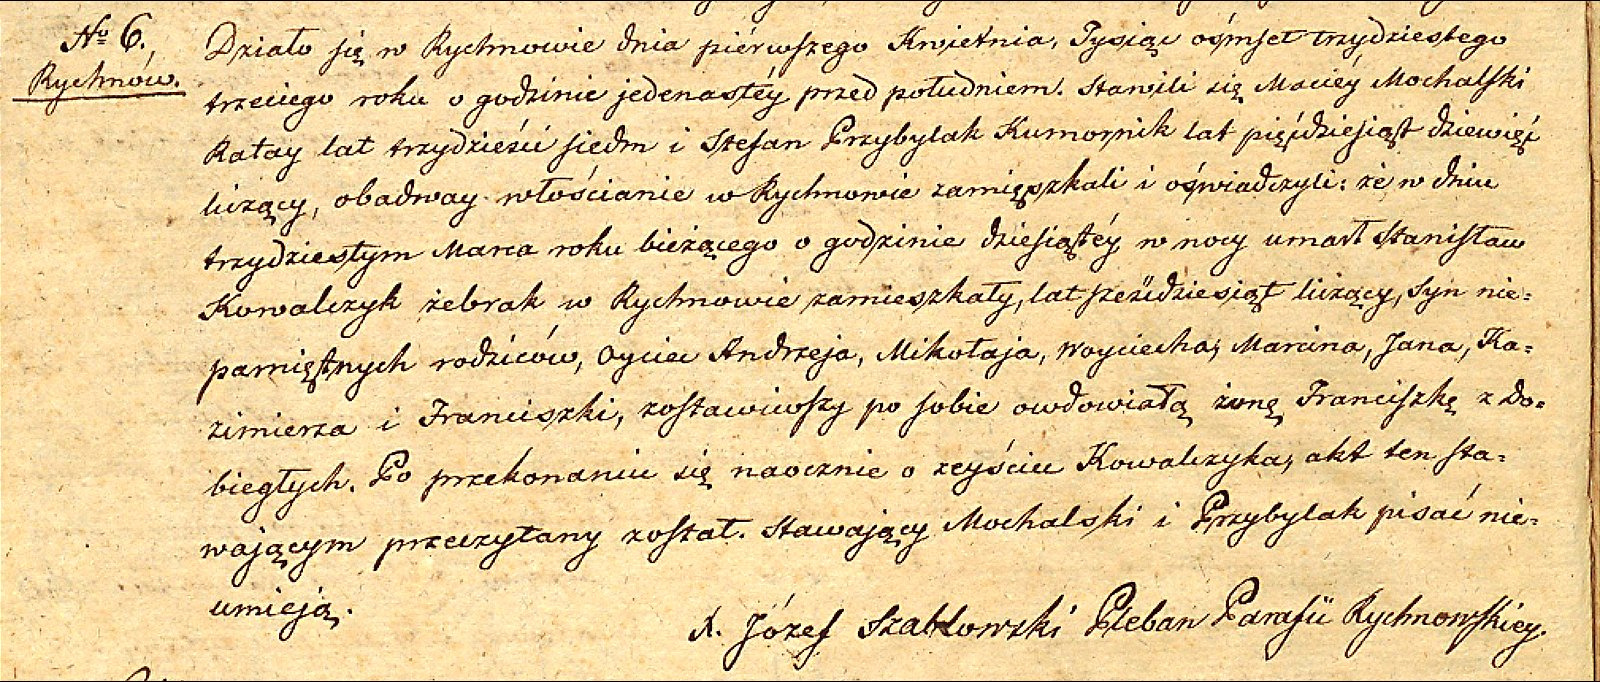 No 6.
Rychnów.
Działo się w Rychnowie dnia piérwszego Kwietnia, Tysiąc ośmset trzydziestego
trzeciego roku o godzinie jedenastéy przed południem. Stawili się Maciéy Mochalski
Ratay lat trzydzieści siedm i Stefan Przybylak Kumornik lat pięćdziesiąt dziewięć
liczący, obadway włościanie w Rychnowie zamięszkali i oświadczyli: że w dniu
trzydziestym Marca roku bieżącego o godzinie dziesiątéy w nocy umarł Stanisław
Kowalczyk żebrak w Rychnowie zamieszkały, lat sześćdziesiąt liczący, Syn nie=
pamiętnych rodziców, Oyciec Andrzeja, Mikołaja, Woyciecha, Marcina, Jana, Ka=
zimierza i Franciszki, zostawiwszy po sobie owdowiałą żonę Franciszkę z Do=
biegłych. Po przekonaniu się naocznie o zeyściu Kowalczyka, akt ten sta=
wającym przeczytany został. Stawający Mochalski i Przybylak pisać nie=
umieją.
X. Józef Szabłowski Pleban Parafii Rychnowskiey.